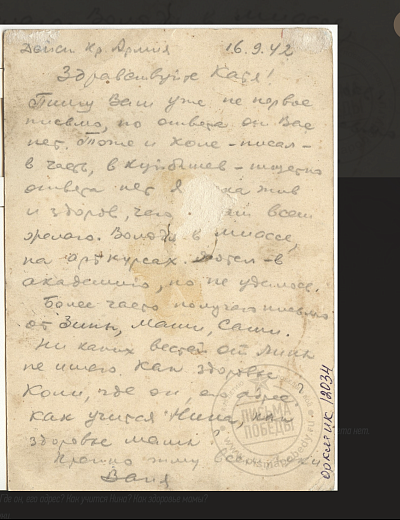 Действ. Кр. Армия 16.9.42
Здравствуйте Катя!
Пишу Вам уже не первое
письмо, но ответа от Вас
нет. Тоже и Коле - писал -
в часть, в Куйбышев - тщетно
ответа нет. Я жив
и здоров, чего всем
желаю. Володя в Миассе,
на курсах. в
академию, но не удалось.
Более часто получаю письма
от Зины, Маши, Саши.
Ни каких вестей от Лины
не имею. Как здоровье
Коли, где он, его адрес?
как учится Нина, как
здоровье мамы?
Крепко жму всем руки
Ваня
ПИСЬМА
ПОБЕДЫ
12034
где он, его адрес? Как учится Нина? Как здоровье мамы?